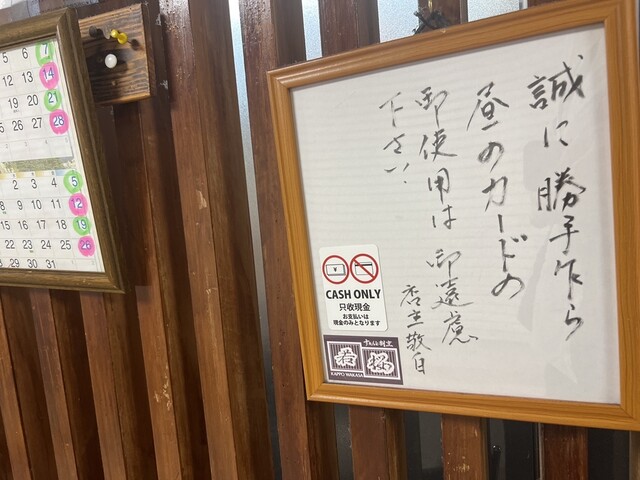 誠に勝手乍ら
昼のカードの
御使用は御遠慮
下さい.
店主敬白
CASH ONLY
只收現金
お支払いは
現金のみとなります
若桜
KAPPO WAKASA
7
5 6
12 13 14
19 20 21
25 26 27 28
2 3 4 5
8 9 10 11 12
15 16 17 18 19
22 23 24 25 26
29 30 31